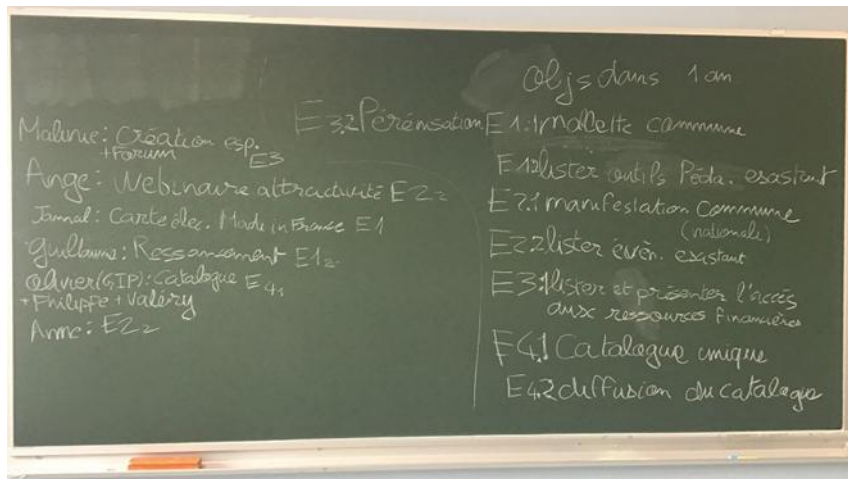 Objs dans 1 an
E3.2 Pérénisation
Malinue: Création esp.
+Forum E3
Ange: Webinaire attractivité E2₂
Jammal: Carte élec. Made in France E1
Guillaume: Ressancement E1₂.
Olivier(GIP): Catalogue E4₁
+Philippe + Valéry
Anne: E2₂
E1.1 mallette commune
E1.2 lister outils Péda. esastant
E2.1 manifestation Commune
(nationale)
E2.2 lister évèn. exastant
E3.1 lister et présenter l'accès
aux ressources financières
E4.1 Catalogue unique
E4.2 diffusion du catalogue